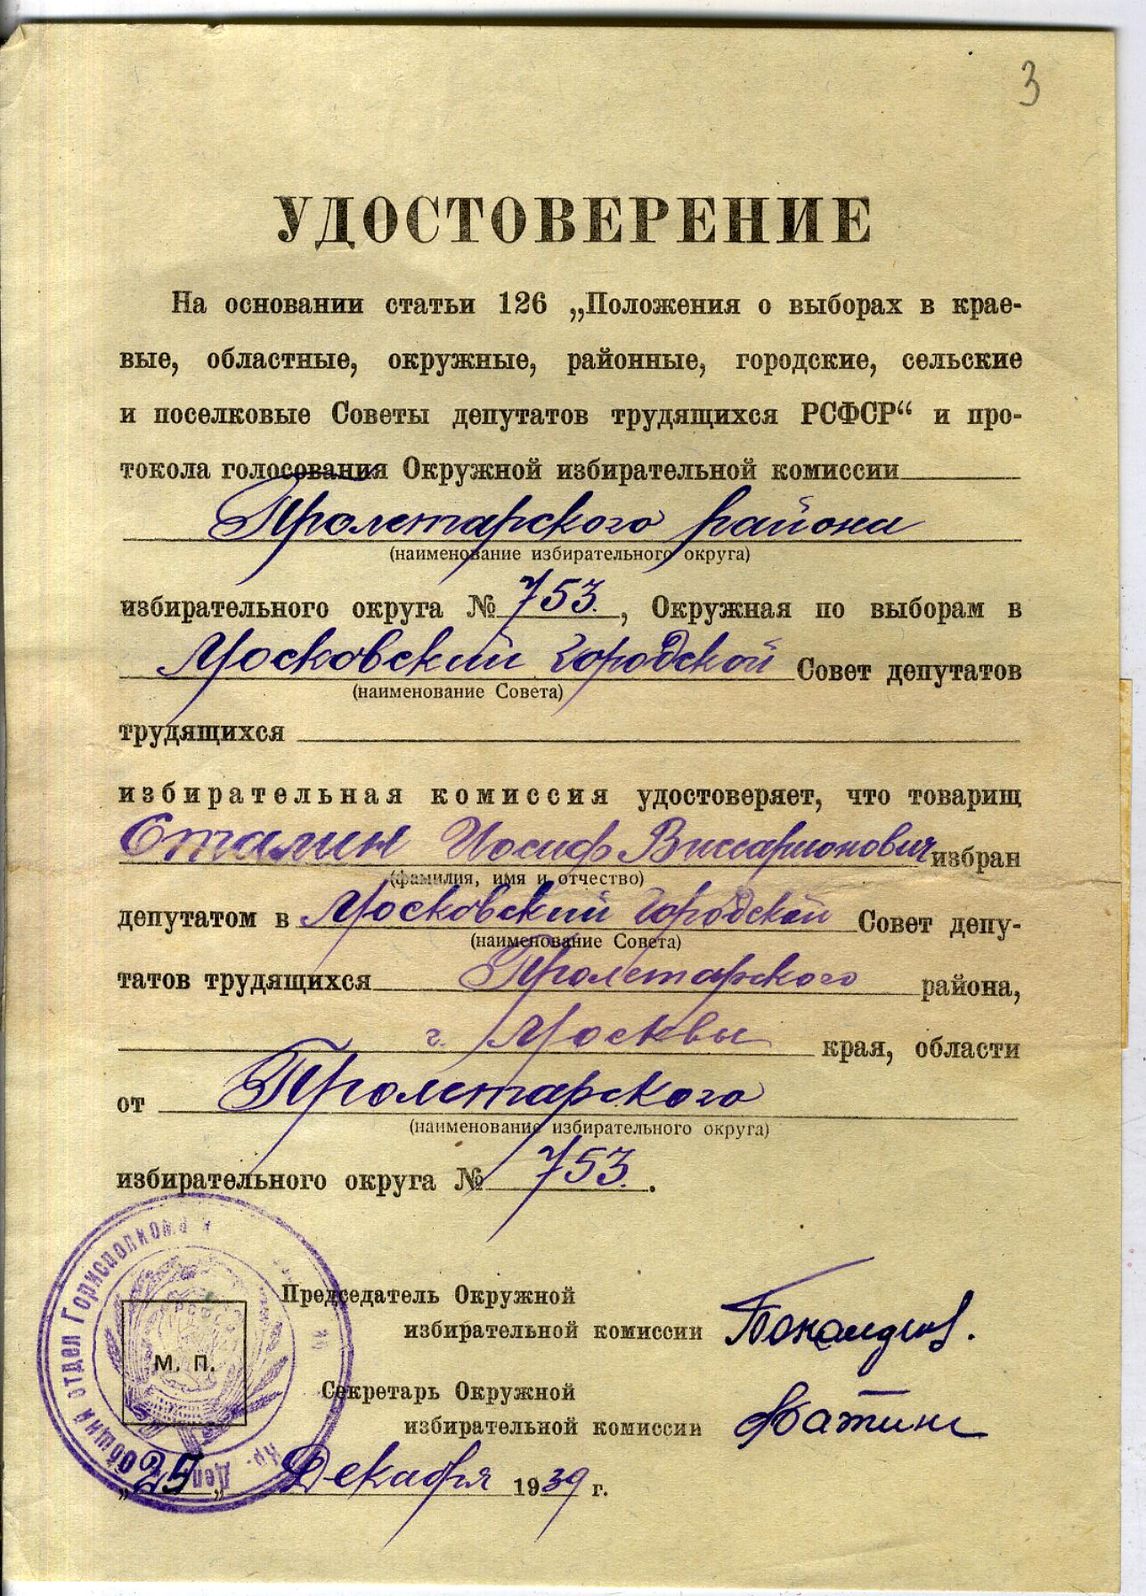 3
УДОСТОВЕРЕНИЕ
На основании статьи 126 „Положения о выборах в крае-
вые, областные, окружные, районные, городские, сельские
и поселковые Советы депутатов трудящихся РСФСР“ и про-
токола голосования Окружной избирательной комиссии
Пролетарского района
(наименование избирательного округа)
избирательного округа № 753. , Окружная по выборам в
Московский городской Совет депутатов
(наименование Совета)
трудящихся
избирательная комиссия удостоверяет, что товарищ
Сталин Иосиф Виссарионович избран
(фамилия, имя и отчество)
депутатом в Московский городской Совет депу-
(наименование Совета)
татов трудящихся Пролетарского района,
г. Москвы края, области
от Пролетарского
(наименование избирательного округа)
избирательного округа № 753. .
Председатель Окружной
избирательной комиссии
Секретарь Окружной
избирательной комиссии
М. П.
Общий отдел Горисполкома
„25„ Декабря 1939 г.